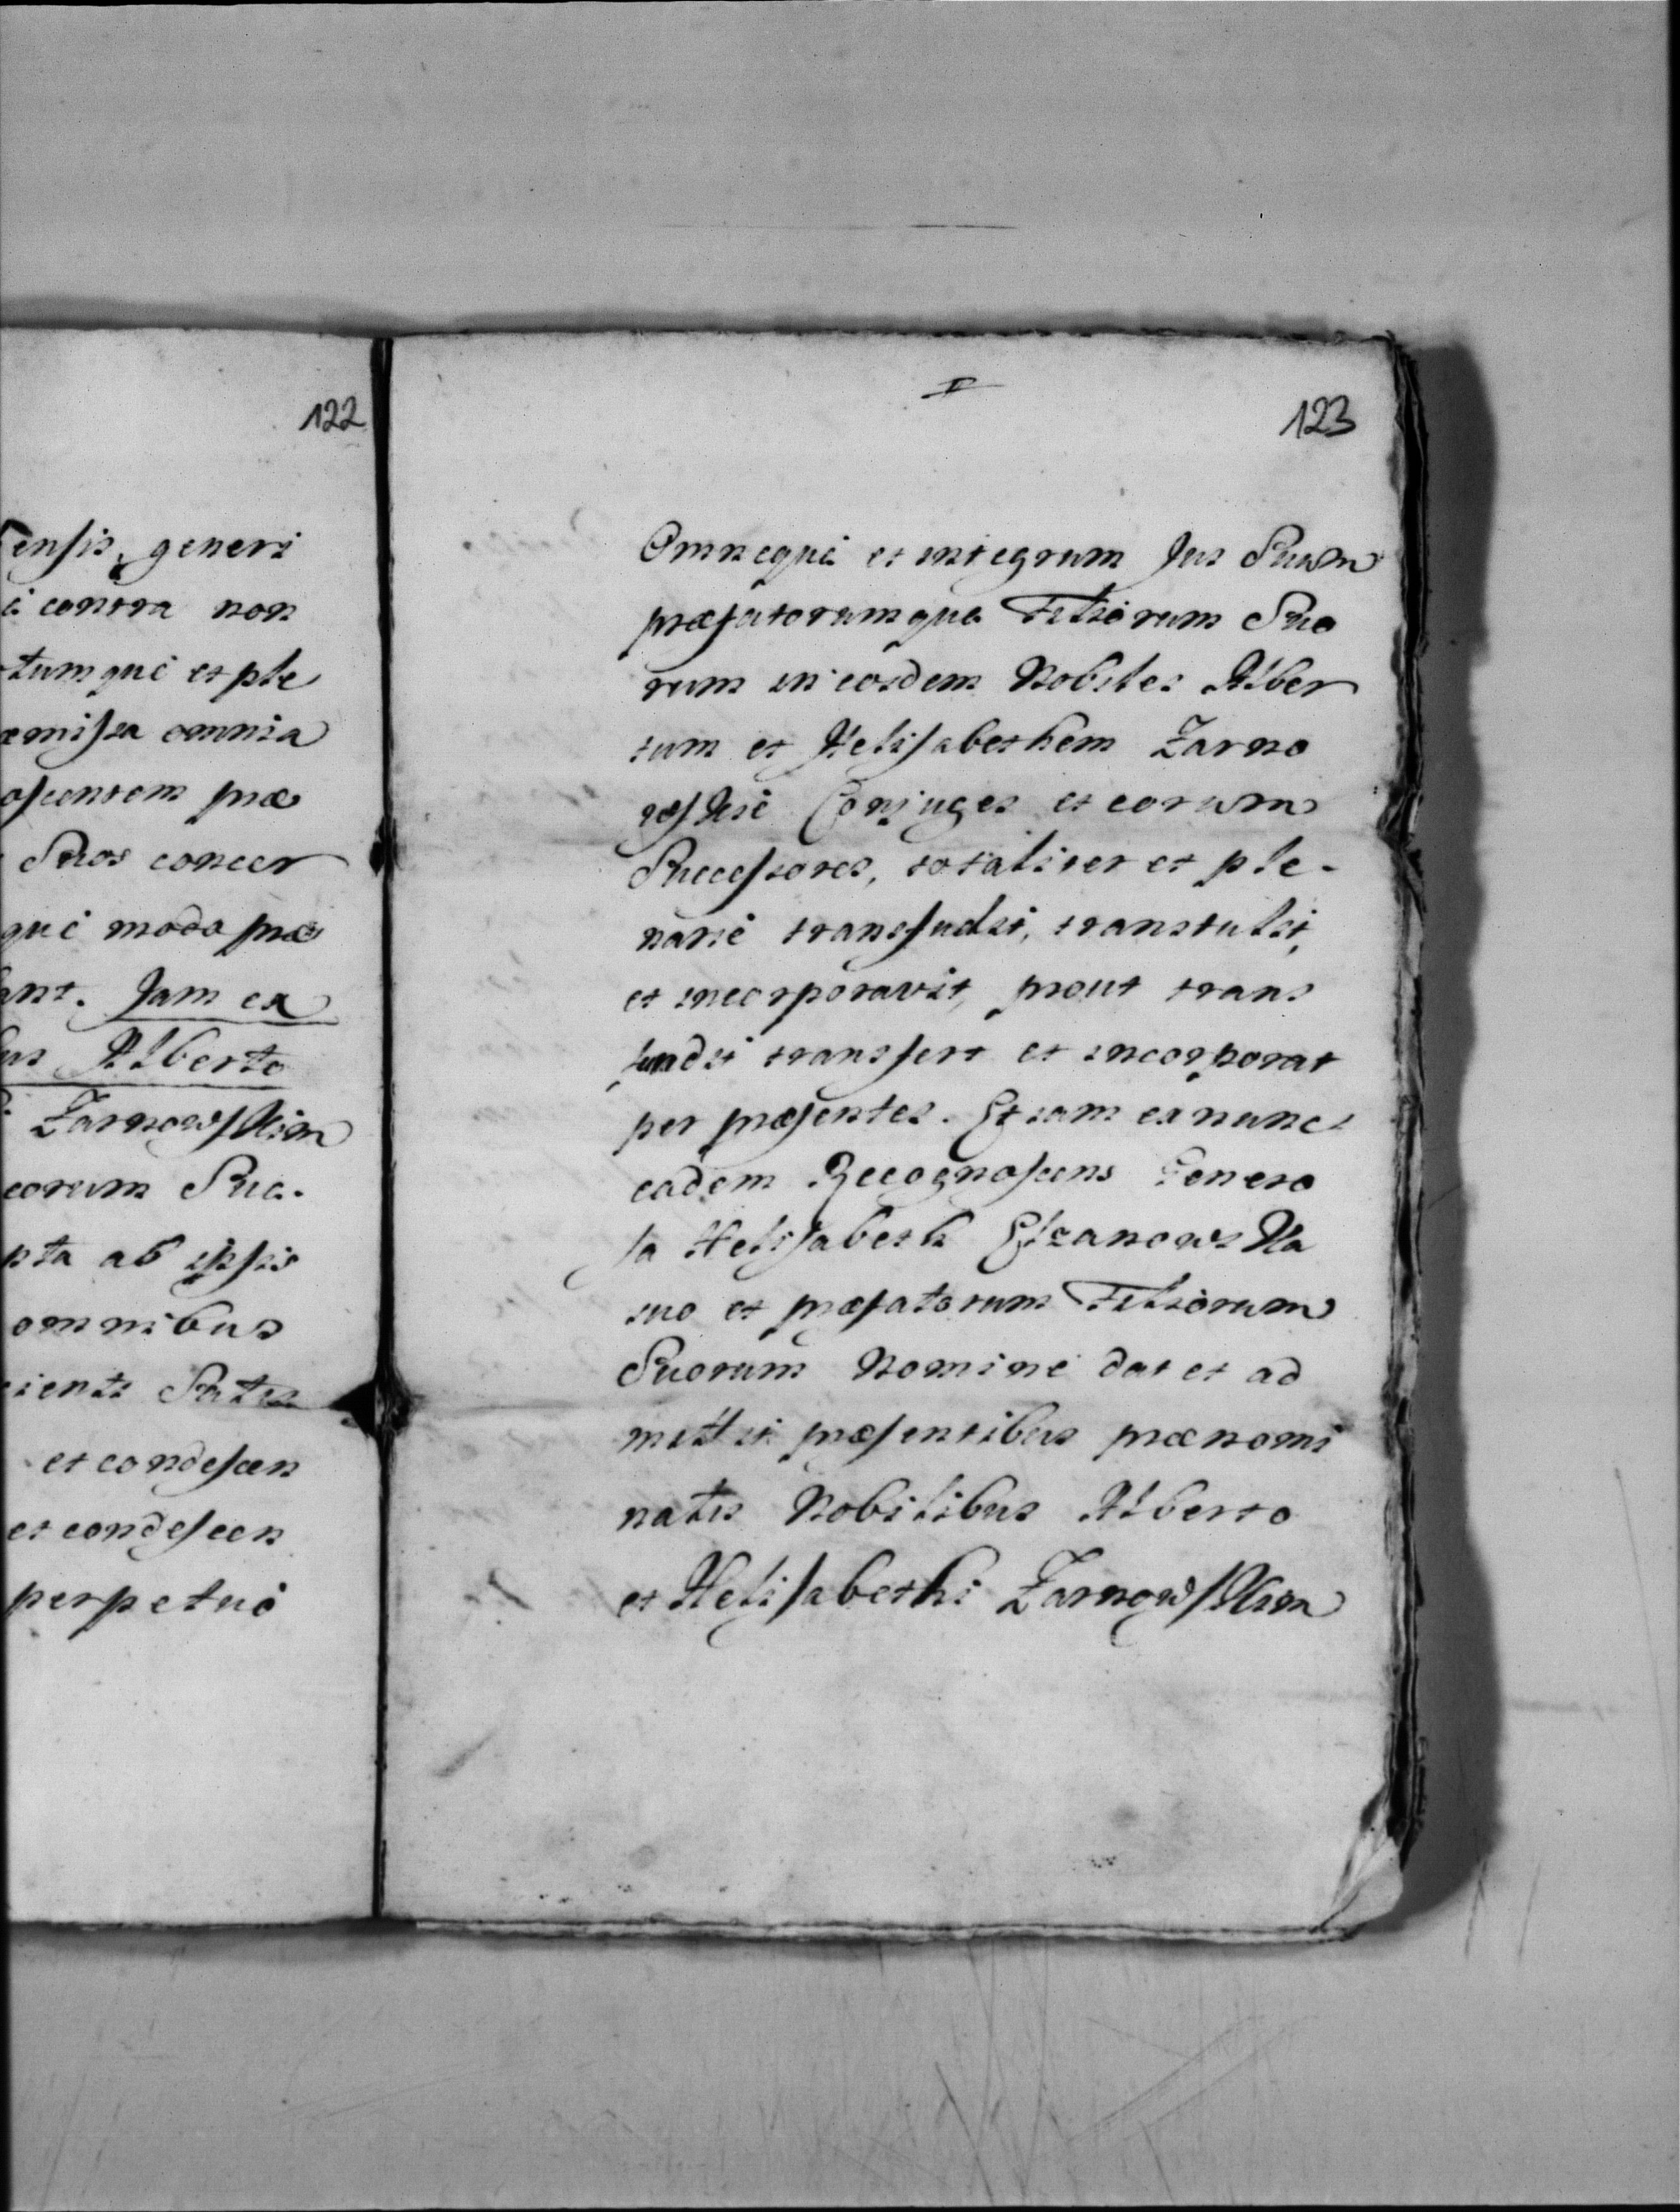 122
ensis, generi
contra non
tumque et ple
æmissa omnia
oscentem præ
Suos concer
que modo præ
ant. Jam ex
Alberto
Zarnowskim
eorum Suc.
pta ab ipsis
omnibus
ienti Satis
et condescen
et condescen
perpetuo
123
Omneque et integrum Jus Suum
præfatorumque Filiorum Suo
rum in eosdem Nobiles Alber
tum et Helisabethem Zarno
Conjuges et eorum
Successores, totaliter et ple-
narie transfudit, transtulit,
et incorporavit, prout trans
fundit transfert et incorporat
per præsentes. Et jam ex nunc
eadem Recognoscens Genero
sa Helisabeth Elzanowska
suo et præfatorum Filiorum
Suorum Nomine dat et ad
mittit præsentibus prænomi
natis Nobilibus Alberto
et Helisabethi Zarnowskim